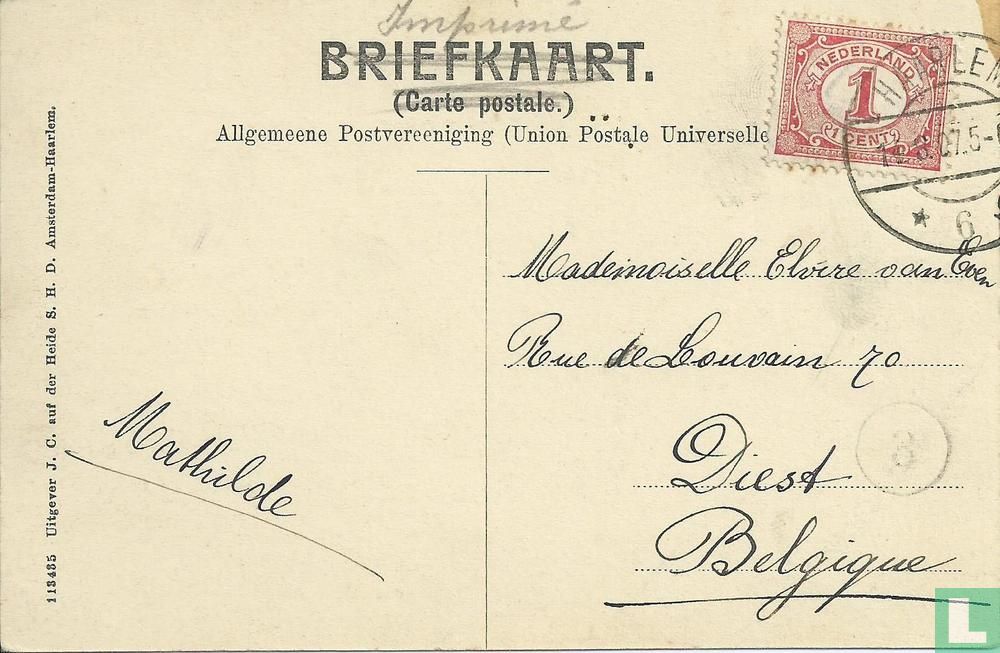 Imprimé
BRIEFKAART.
(Carte postale.)
Allgemeene Postvereeniging (Union Postale Universelle
NEDERLAND
1
1 CENT
5-
6
Mademoiselle Elvire van Even
Rue de Louvain 70
Diest
Belgique
Mathilde
113435 Uitgever J. C. auf der Heide S. H. D. Amsterdam-Haarlem.
L